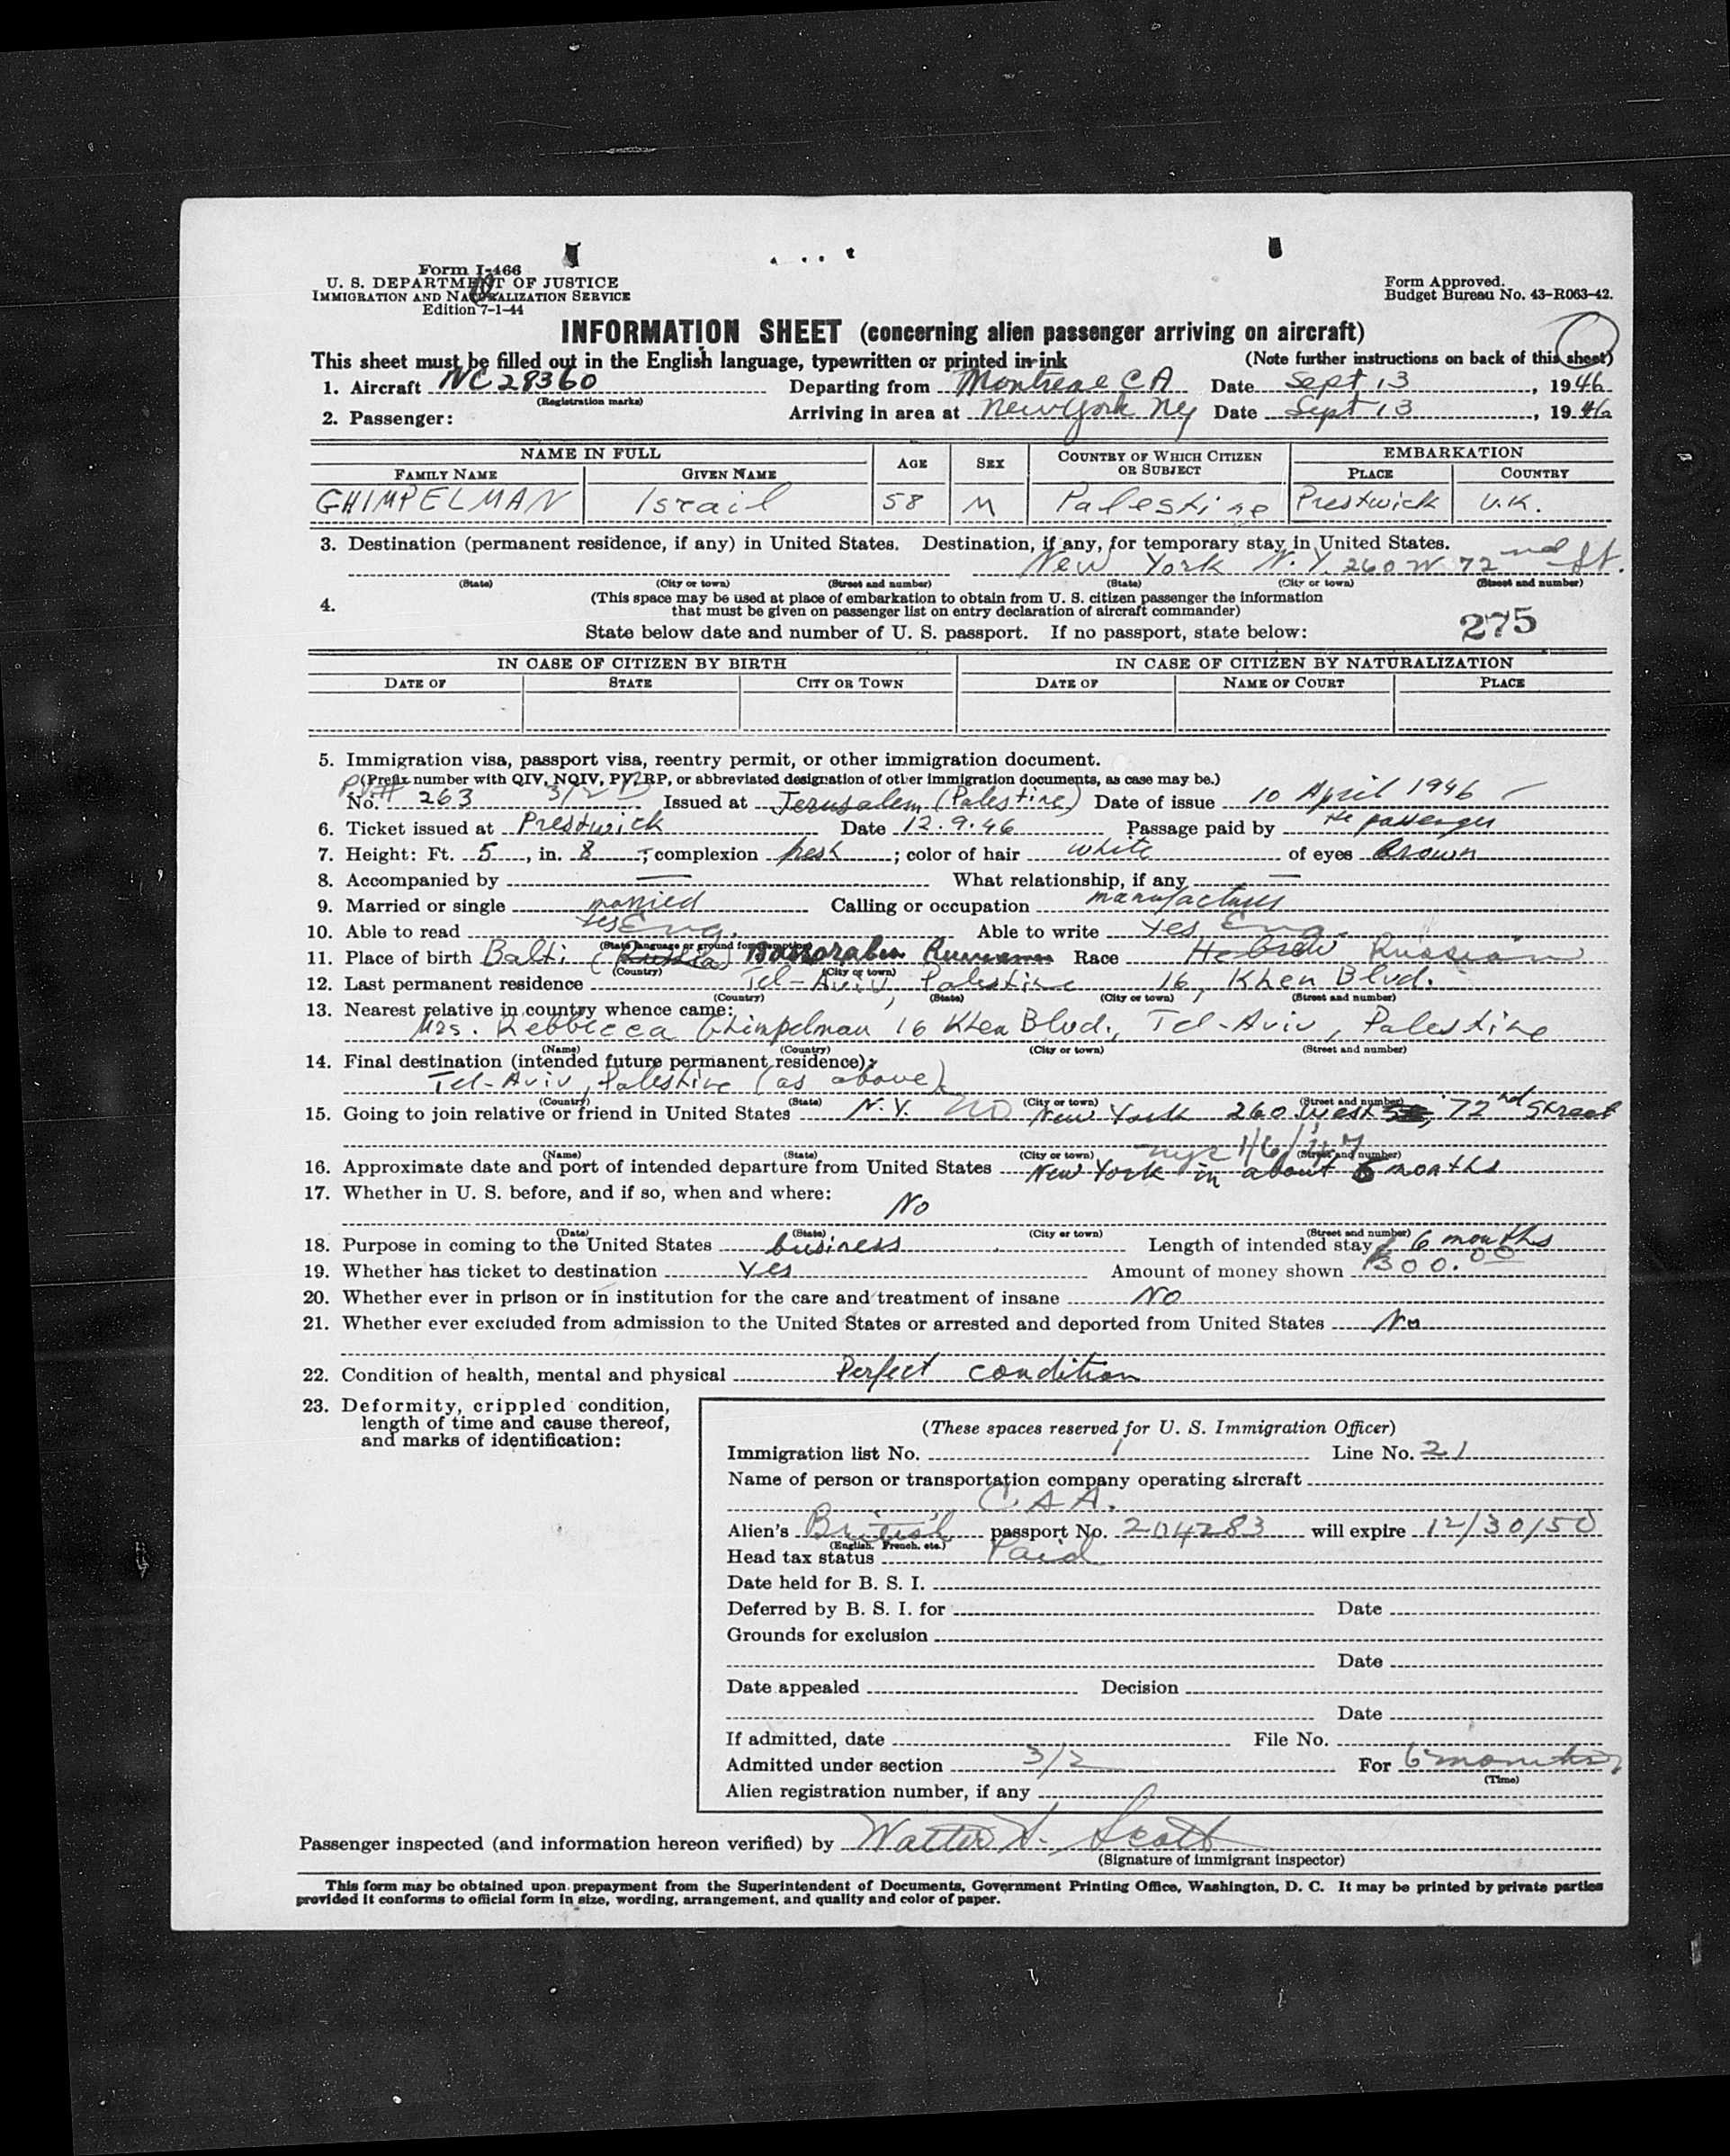 Form I-466
U. S. DEPARTMENT OF JUSTICE
IMMIGRATION AND NATURALIZATION SERVICE
Edition 7-1-44
Form Approved.
Budget Bureau No. 43-R063-42.
INFORMATION SHEET (concerning alien passenger arriving on aircraft)
This sheet must be filled out in the English language, typewritten or printed in ink (Note further instructions on back of this sheet)
1. Aircraft NC 28360 Departing from Montreal CA Date Sept 13, 1946
(Registration marks)
2. Passenger: Arriving in area at New York NY Date Sept 13, 1946
NAME IN FULL AGE SEX COUNTRY OF WHICH CITIZEN OR SUBJECT EMBARKATION
FAMILY NAME GIVEN NAME PLACE COUNTRY
GHIMPELMAN Israil 58 M Palestine Prestwick U.K.
3. Destination (permanent residence, if any) in United States. Destination, if any, for temporary stay in United States.
New York N.Y. 260 W 72nd St.
(State) (City or town) (Street and number) (State) (City or town) (Street and number)
4. (This space may be used at place of embarkation to obtain from U. S. citizen passenger the information
that must be given on passenger list on entry declaration of aircraft commander)
State below date and number of U. S. passport. If no passport, state below: 275
IN CASE OF CITIZEN BY BIRTH IN CASE OF CITIZEN BY NATURALIZATION
DATE OF STATE CITY OR TOWN DATE OF NAME OF COURT PLACE
5. Immigration visa, passport visa, reentry permit, or other immigration document.
(Prefix number with QIV, NQIV, PV, RP, or abbreviated designation of other immigration documents, as case may be.)
PV# No. 263 3/2 Issued at Jerusalem (Palestine) Date of issue 10 April 1946
6. Ticket issued at Prestwick Date 12.9.46 Passage paid by the passenger
7. Height: Ft. 5, in. 8; complexion fresh; color of hair white of eyes Brown
8. Accompanied by — What relationship, if any —
9. Married or single married Calling or occupation manufacturer
10. Able to read yes Eng. Able to write Yes Eng.
(State language or ground for exemption)
11. Place of birth Balti (Russia) Bassorabia Rumania Race Hebrew Russian
(Country) (City or town)
12. Last permanent residence Tel-Aviv, Palestine 16, Khen Blvd.
(Country) (State) (City or town) (Street and number)
13. Nearest relative in country whence came:
Mrs. Rebbecca Ghimpelman 16 Khen Blvd., Tel-Aviv, Palestine
(Name) (Country) (City or town) (Street and number)
14. Final destination (intended future permanent residence):
Tel-Aviv, Palestine (as above)
(Country) (State) (City or town) (Street and number)
15. Going to join relative or friend in United States N.Y. no New York 260 West 72nd Street
(Name) (State) (City or town) (Street and number)
nyc 1/6/47
16. Approximate date and port of intended departure from United States New York in about 6 months
17. Whether in U. S. before, and if so, when and where:
No
(Date) (State) (City or town) (Street and number)
18. Purpose in coming to the United States business Length of intended stay 6 months
19. Whether has ticket to destination Yes Amount of money shown $300.00
20. Whether ever in prison or in institution for the care and treatment of insane No
21. Whether ever excluded from admission to the United States or arrested and deported from United States No
22. Condition of health, mental and physical Perfect condition
23. Deformity, crippled condition,
length of time and cause thereof,
and marks of identification:
(These spaces reserved for U. S. Immigration Officer)
Immigration list No. 1 Line No. 21
Name of person or transportation company operating aircraft
C. A A.
Alien's British passport No. 204283 will expire 12/30/50
(English. French. etc.)
Head tax status Paid
Date held for B. S. I.
Deferred by B. S. I. for Date
Grounds for exclusion
Date
Date appealed Decision
Date
If admitted, date File No.
Admitted under section 3/2 For 6 months
(Time)
Alien registration number, if any
Passenger inspected (and information hereon verified) by Walter Scott
(Signature of immigrant inspector)
This form may be obtained upon prepayment from the Superintendent of Documents, Government Printing Office, Washington, D. C. It may be printed by private parties
provided it conforms to official form in size, wording, arrangement, and quality and color of paper.